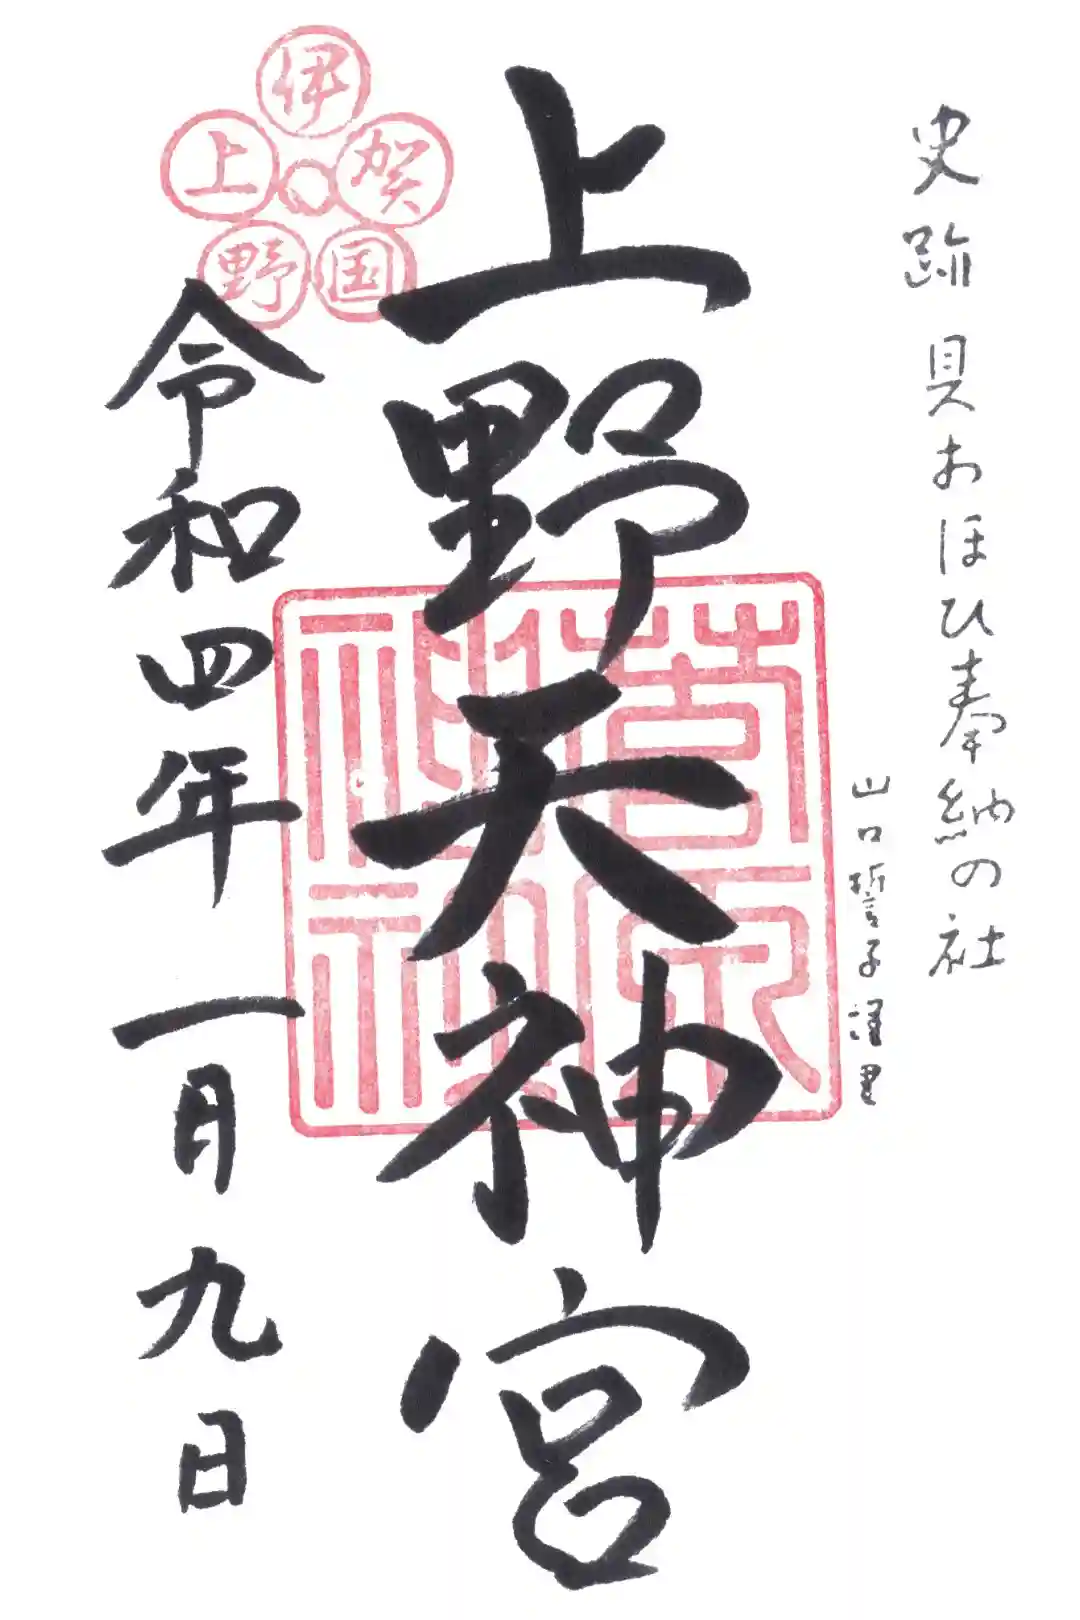 史跡 貝おほひ奉納の社
山口誓子謹書
上野天神宮
伊賀国上野
菅原神社
令和四年一月九日